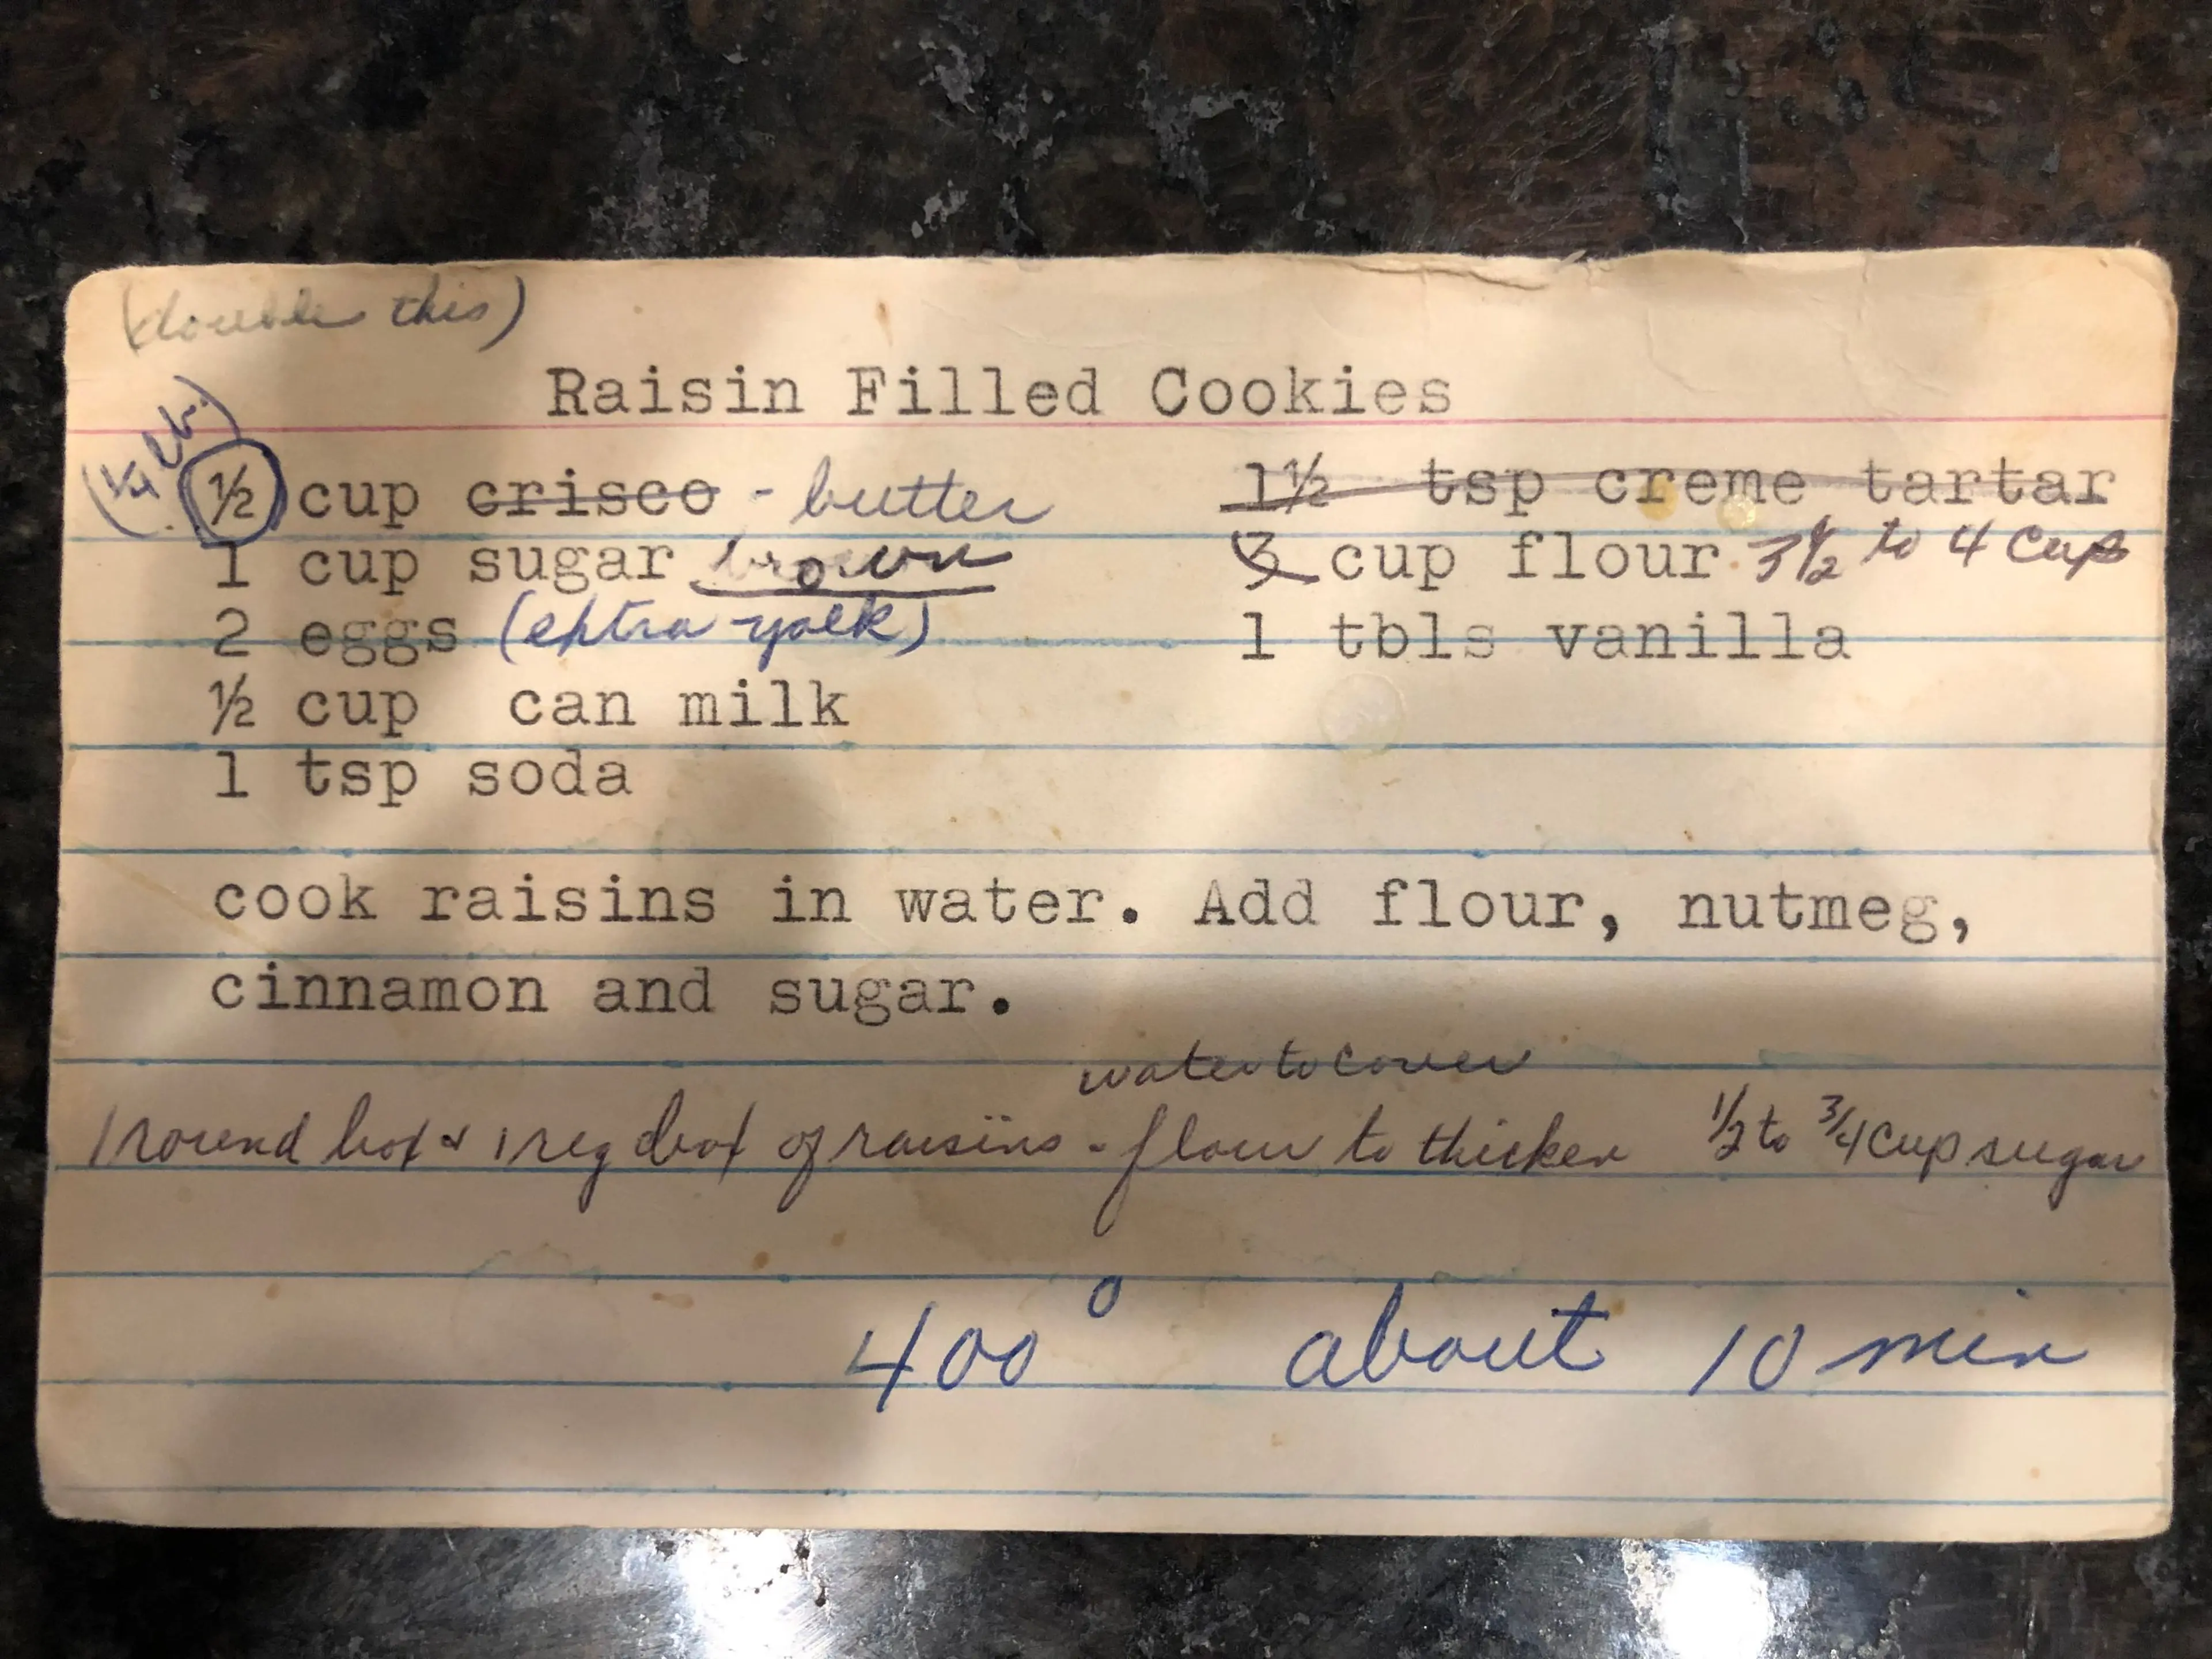 (double this)
Raisin Filled Cookies
(¼ lb.)
½ cup crisco - butter
1 cup sugar brown
2 eggs (extra yolk)
½ cup can milk
1 tsp soda
1½ tsp creme tartar
3 cup flour 3½ to 4 cups
1 tbls vanilla
cook raisins in water. Add flour, nutmeg,
cinnamon and sugar.
water to cover
1 round box & 1 reg box of raisins - flour to thicken ½ to ¾ cup sugar
400° about 10 min